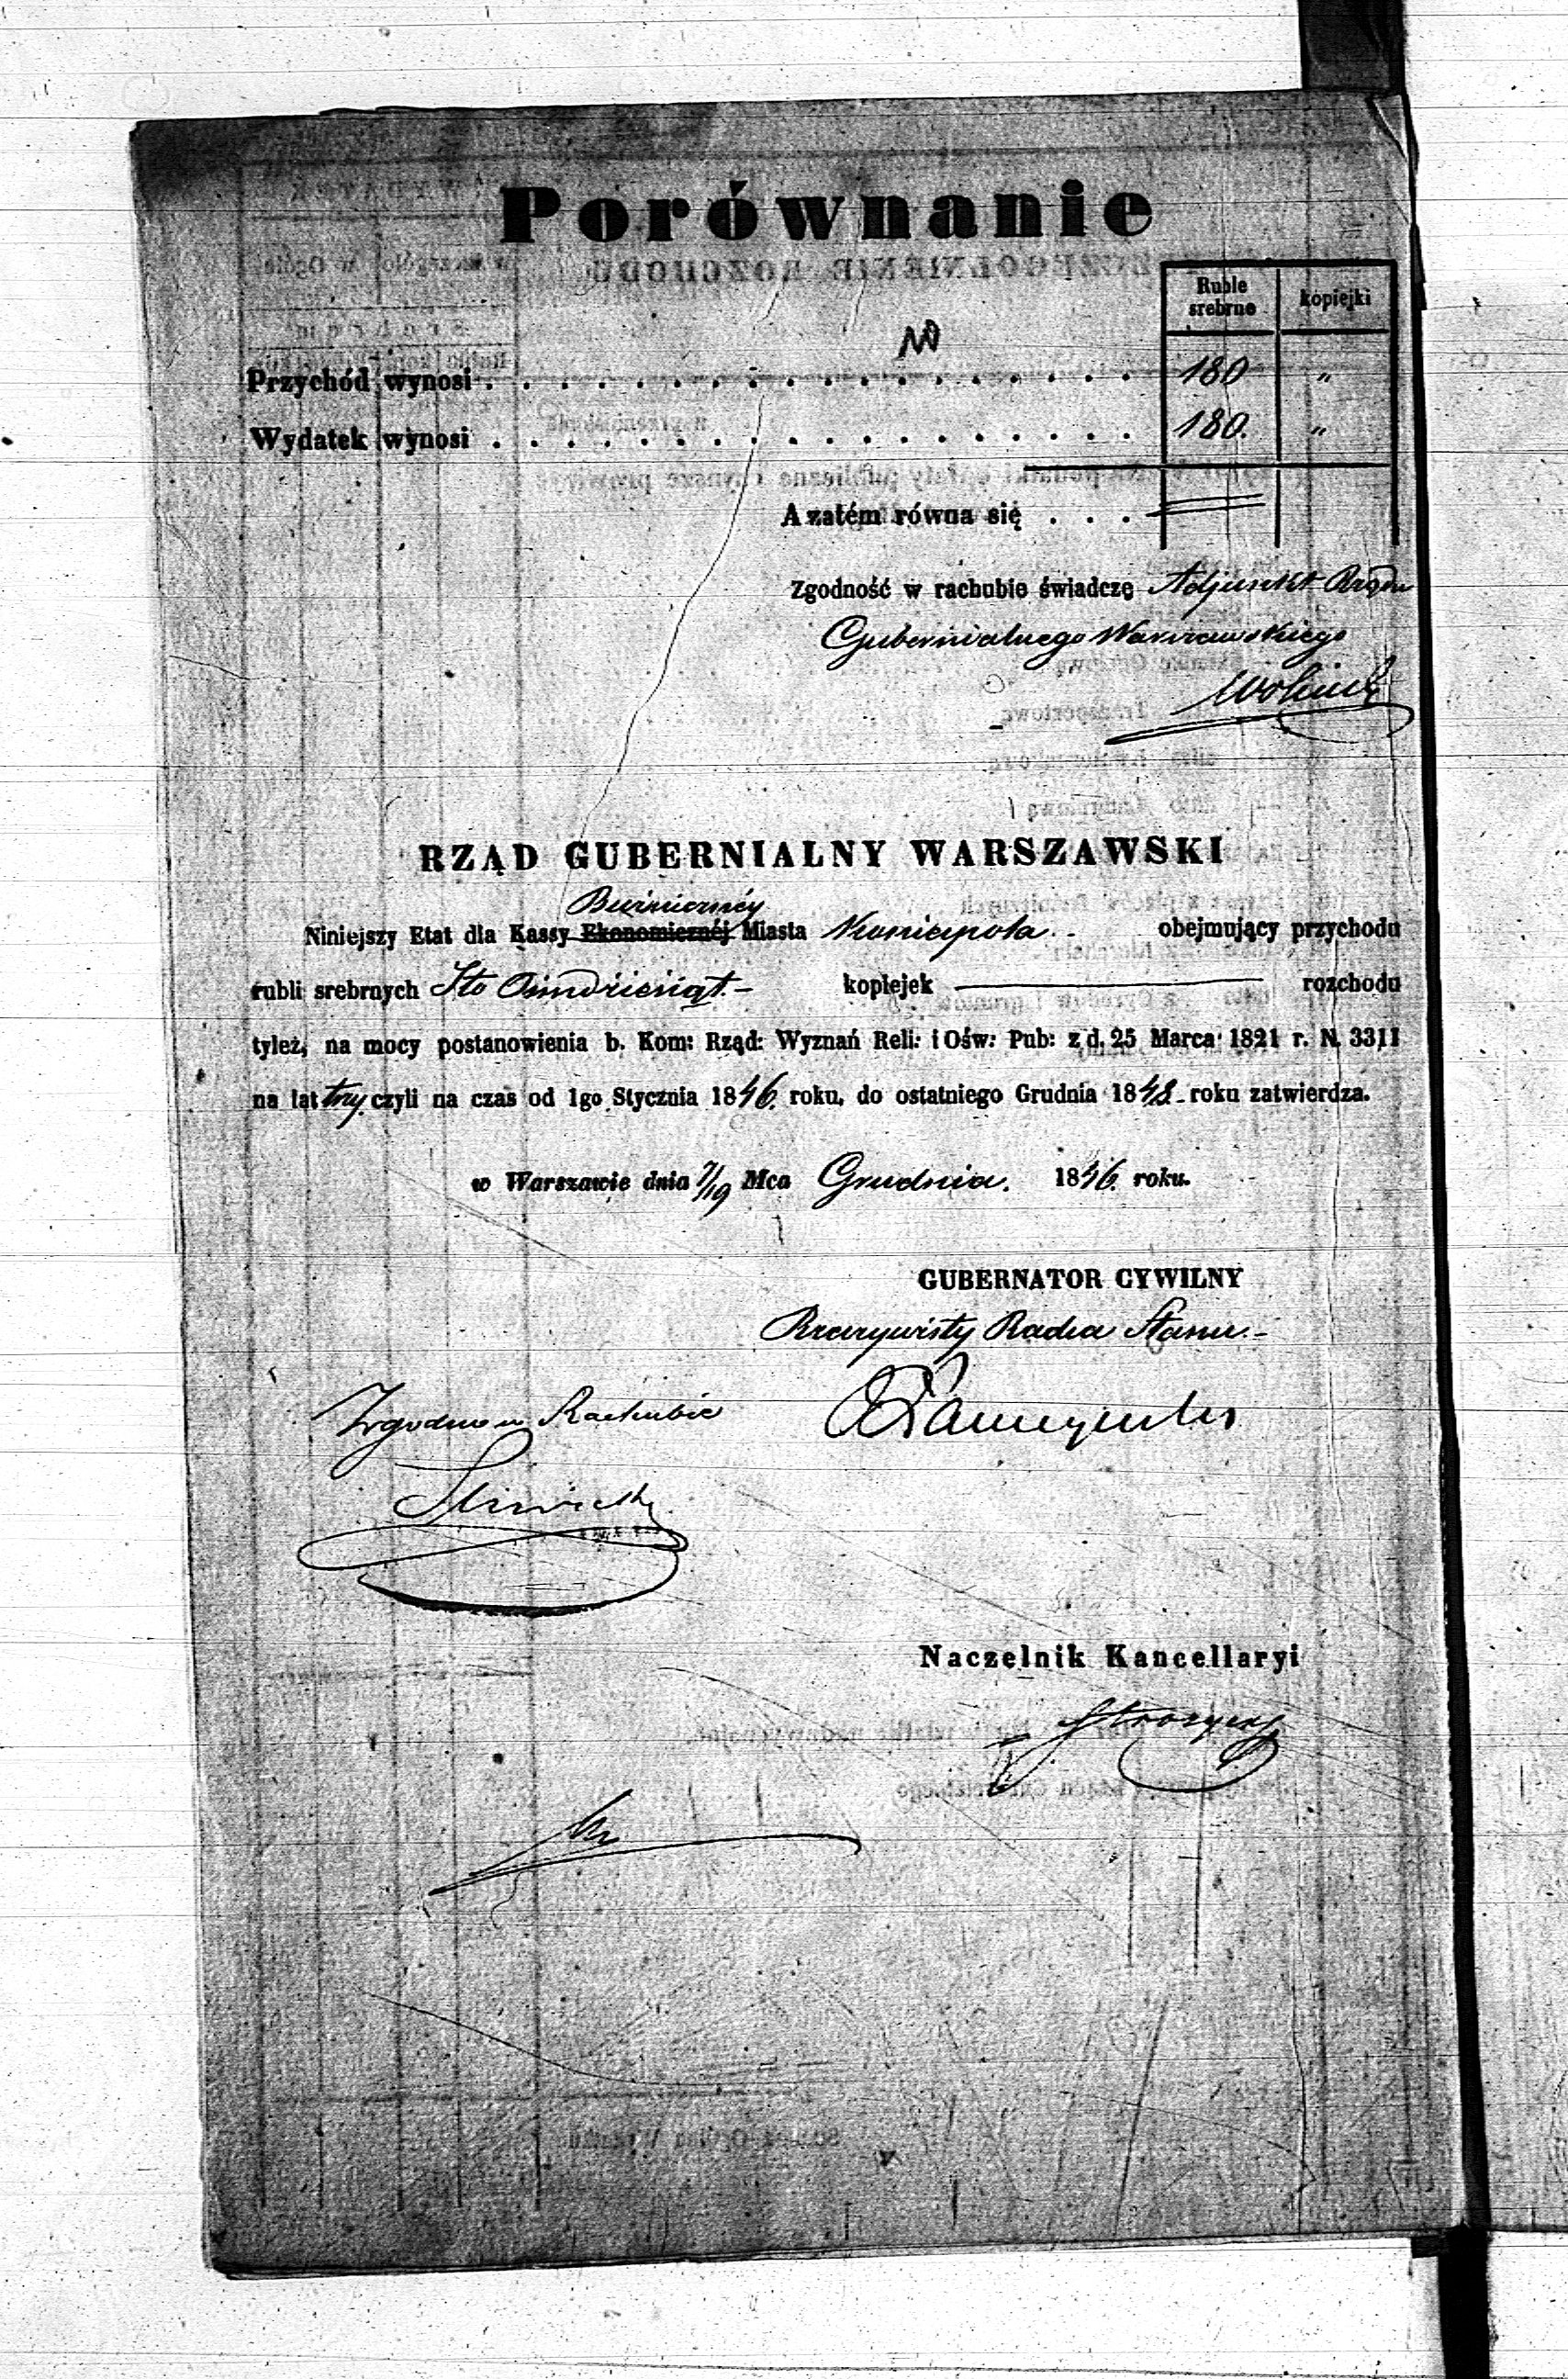 Porównanie
Ruble srebrne kopiejki
Przychód wynosi . . . . . . . . . . . . . . . . . . 180 "
Wydatek wynosi . . . . . . . . . . . . . . . . . . 180. "
A zatém równa się . . .
Zgodność w rachubie świadczę Adjunkt Rządu
Gubernialnego Warszawskiego
RZĄD GUBERNIALNY WARSZAWSKI
Bużnicznéy
Niniejszy Etat dla Kassy Ekonomicznéj Miasta Koniecpola obejmujący przychodu
rubli srebrnych Sto Ośmdziesiąt.- kopiejek rozchodu
tyleż, na mocy postanowienia b. Kom: Rząd: Wyznań Reli: i Ośw: Pub: z d. 25 Marca 1821 r. N. 3311
na lat trzy czyli na czas od 1go Stycznia 1846. roku, do ostatniego Grudnia 1848 roku zatwierdza.
w Warszawie dnia 7/19 Mca Grudnia. 1846. roku.
GUBERNATOR CYWILNY
Rzeczywisty Radca Stanu.-
Zgodno w Rachubie
Naczelnik Kancellaryi